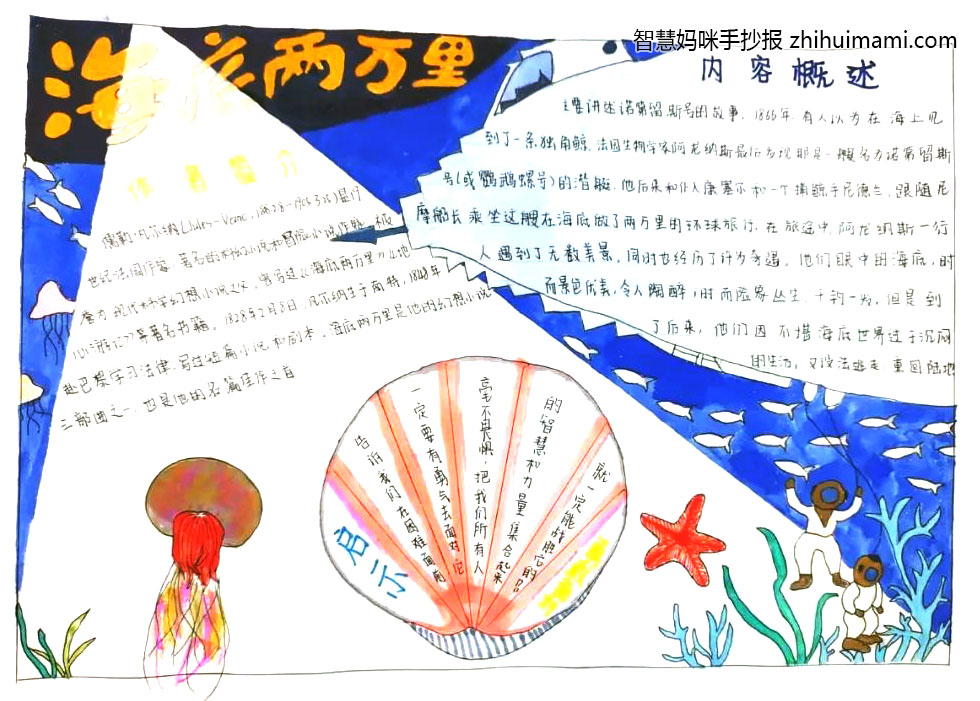 智慧妈咪手抄报 zhihuimami.com
海底两万里
作者简介
儒勒·凡尔纳
世纪法国作家,著名的科幻小说和冒险小说作家,被
誉为"现代科学幻想小说之父"曾写过《海底两万里》《地
心游记》等著名书籍。1828年2月8日,凡尔纳生于南特,1848年
赴巴黎学习法律,写过短篇小说和剧本。海底两万里是他的幻想小说
三部曲之一,也是他的名篇佳作之首
内容概述
主要讲述诺第留斯号的故事,1866年,有人以为在海上见
到了一条独角鲸,法国生物学家阿龙纳斯最后发现那是一艘名为诺第留斯
号(或鹦鹉螺号)的潜艇,他后来和仆人康塞尔和一个捕鲸手尼德兰,跟随尼
摩船长乘坐这艘在海底做了两万里的环球旅行,在旅途中,阿龙纳斯一行
人遇到了无数美景,同时也经历了许多奇遇。他们眼中的海底,时
而景色优美,令人陶醉,时而险象丛生,千钧一发,但是到
了后来,他们因不堪海底世界过于沉闷
的生活,又设法逃走,重回陆地
启示
告诉我们在困难面前
一定要有勇气去面对它
毫不畏惧,把我们所有人
的智慧和力量集合起来
就一定能战胜它的